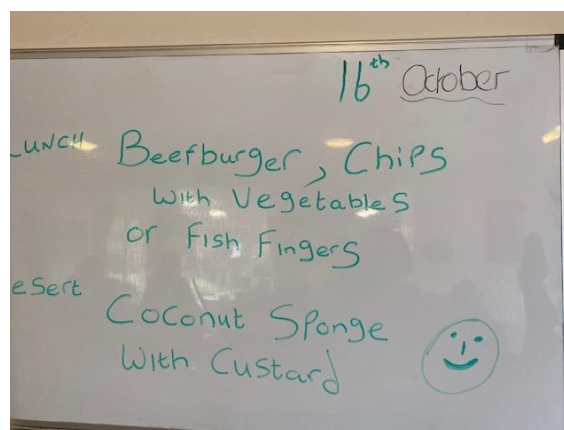 16th October
LUNCH Beefburger, Chips
with Vegetables
or Fish Fingers
eSert
Coconut Sponge
With Custard